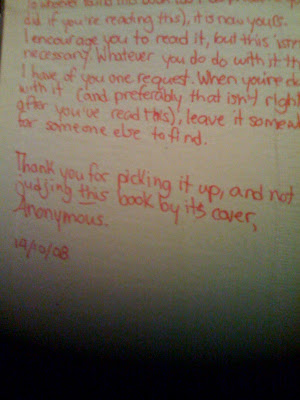 To whoever found this book
did if you're reading this), it's now yours.
I encourage you to read it, but this isn't
necessary. Whatever you do do with it th
I have of you one request. When you're d
with it (and preferably that isn't righ
after you've read this), leave it somew
for someone else to find.
Thank you for picking it up, and not
judging this book by its cover,
Anonymous.
19/10/08